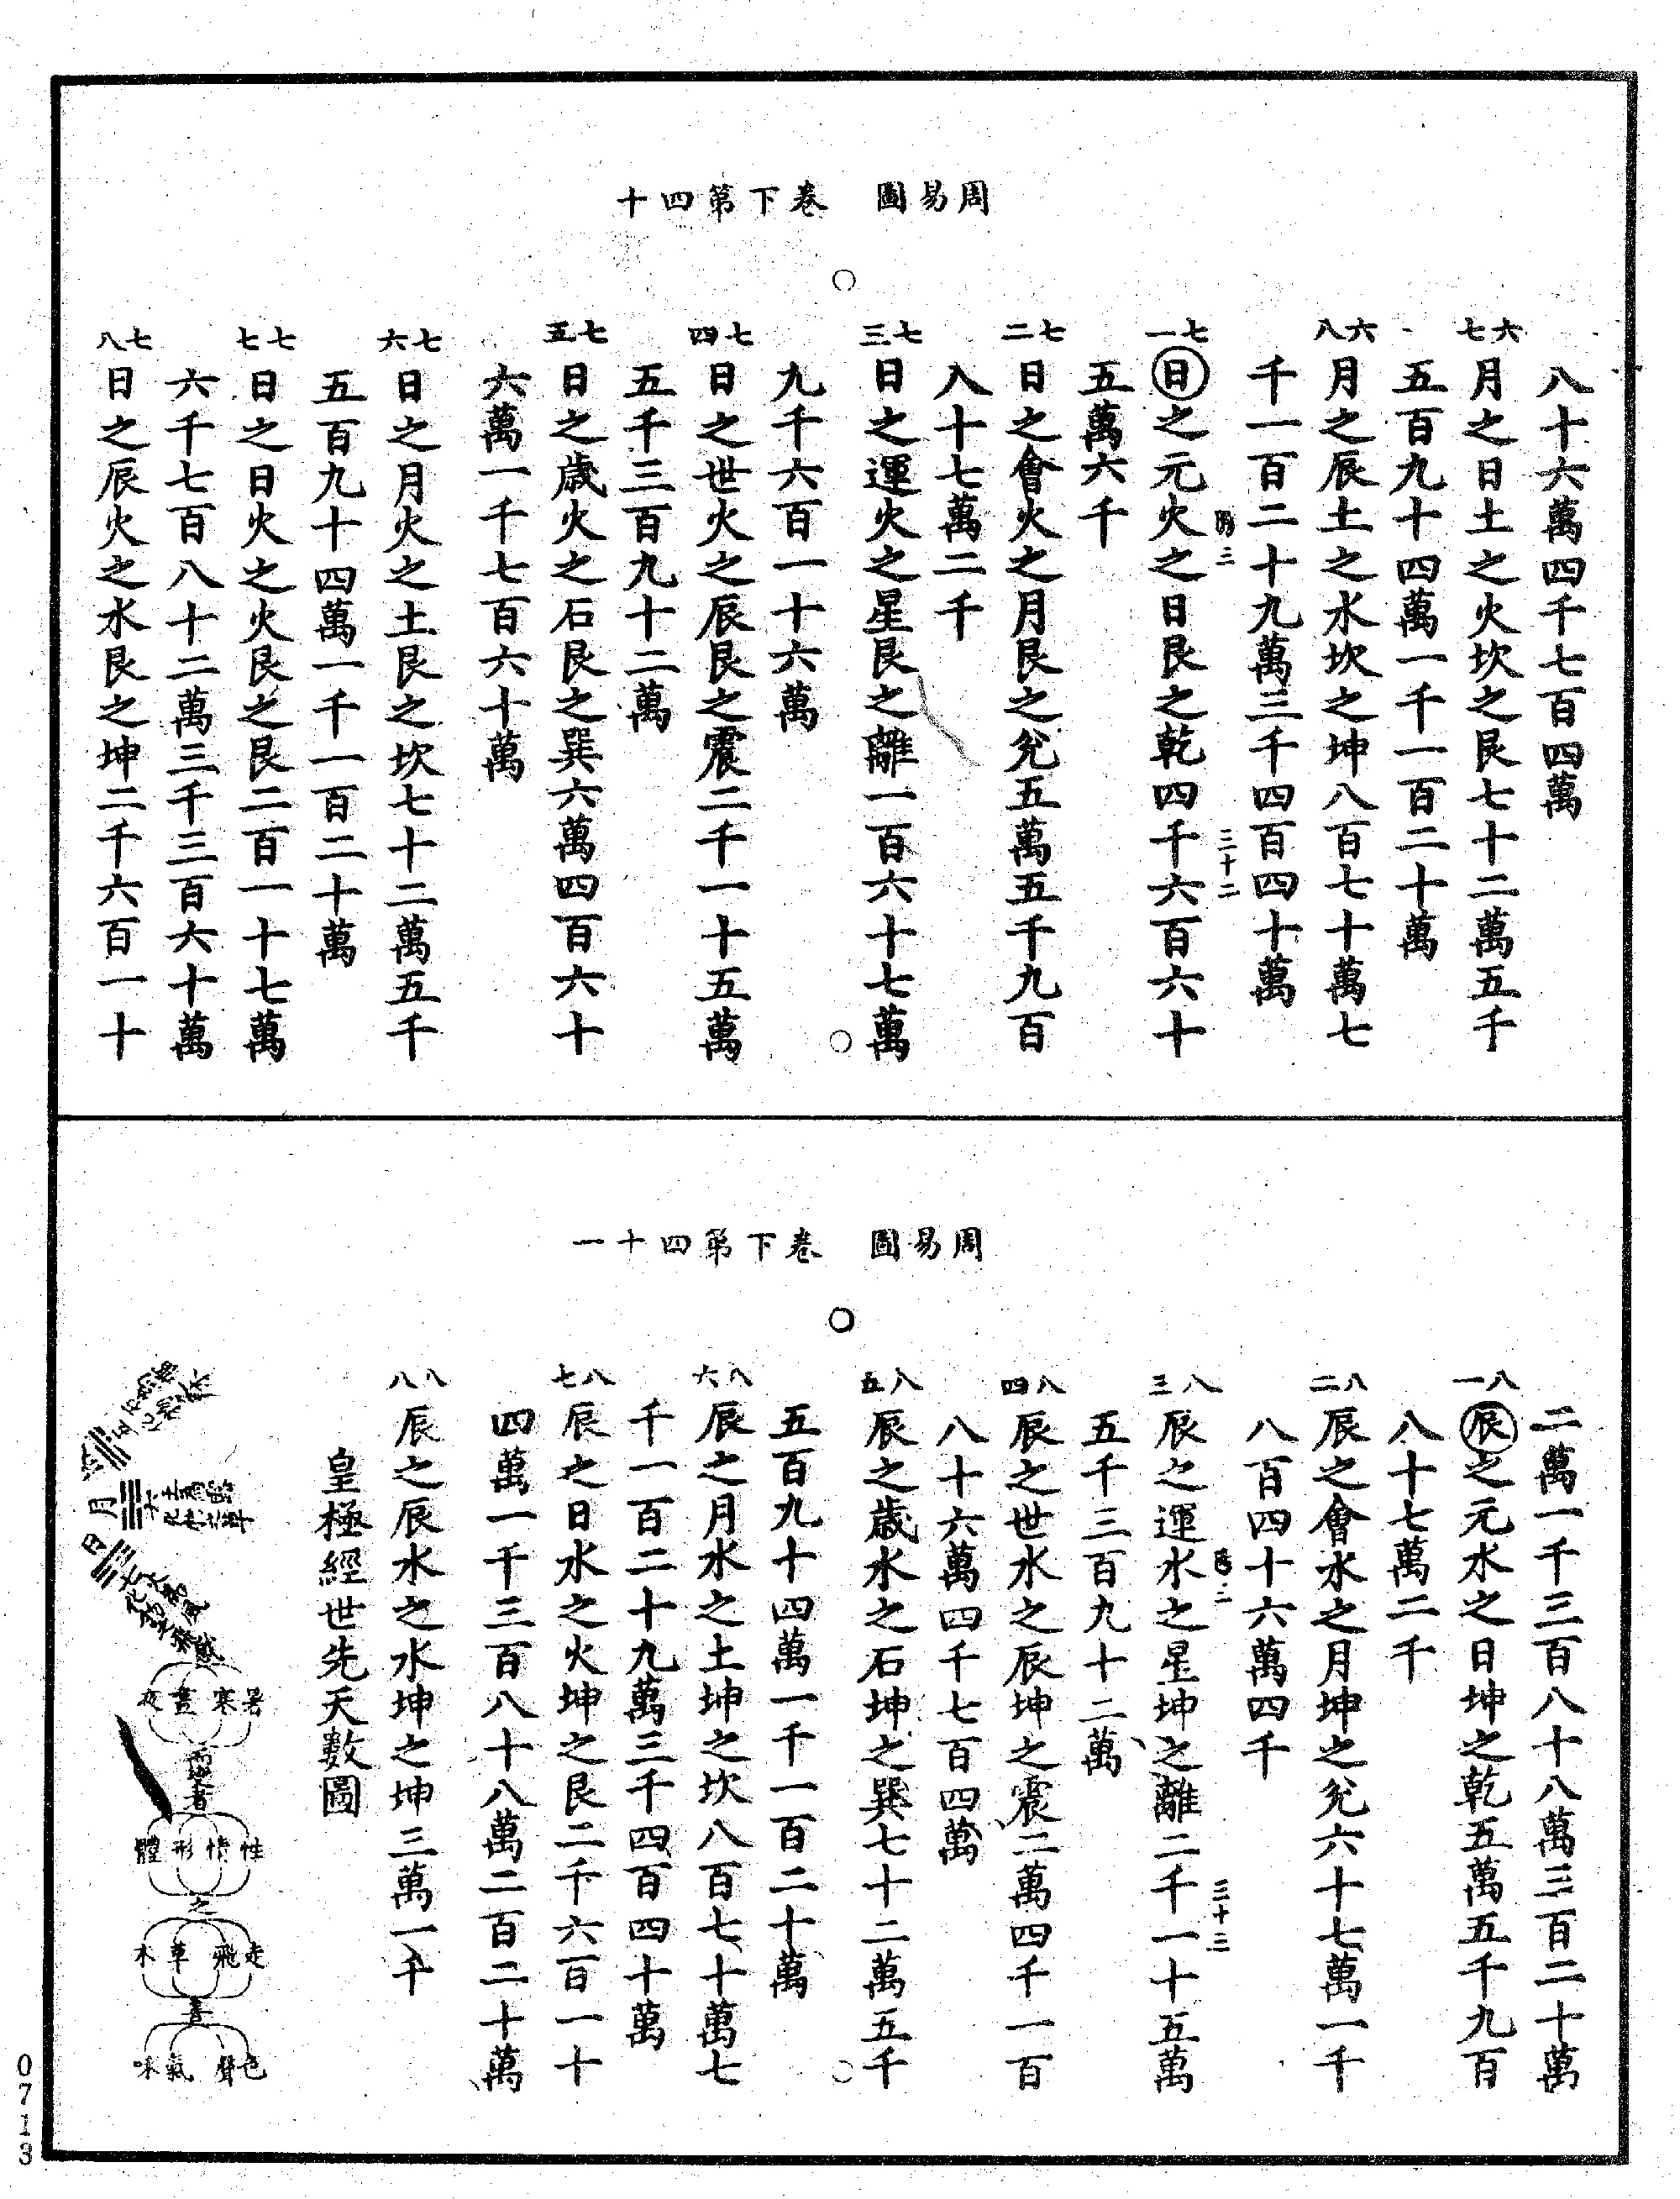 周易圖　卷下第四十
八十六萬四千七百四萬
六七
月之日土之火坎之艮七十二萬五千
五百九十四萬一千一百二十萬
六八
月之辰土之水坎之坤八百七十萬七
千一百二十九萬三千四百四十萬
三十二
七一
日之元火之日艮之乾四千六百六十
五萬六千
七二
日之會火之月艮之兌五萬五千九百
八十七萬二千
七三
日之運火之星艮之離一百六十七萬
九千六百一十六萬
七四
日之世火之辰艮之震二千一十五萬
五千三百九十二萬
七五
日之歲火之石艮之巽六萬四百六十
六萬一千七百六十萬
七六
日之月火之土艮之坎七十二萬五千
五百九十四萬一千一百二十萬
七七
日之日火之火艮之艮二百一十七萬
六千七百八十二萬三千三百六十萬
七八
日之辰火之水艮之坤二千六百一十
周易圖　卷下第四十一
二萬一千三百八十八萬三百二十萬
八一
辰之元水之日坤之乾五萬五千九百
八十七萬二千
八二
辰之會水之月坤之兌六十七萬一千
八百四十六萬四千
三十三
八三
辰之運水之星坤之離二千一十五萬
五千三百九十二萬
八四
辰之世水之辰坤之震二萬四千一百
八十六萬四千七百四萬
八五
辰之歲水之石坤之巽七十二萬五千
五百九十四萬一千一百二十萬
八六
辰之月水之土坤之坎八百七十萬七
千一百二十九萬三千四百四十萬
八七
辰之日水之火坤之艮二千六百一十
四萬一千三百八十八萬二百二十萬
八八
辰之辰水之水坤之坤三萬一千
皇極經世先天數圖
月
日
暑寒晝夜
性情形體
之
走飛草木
色聲氣味
0713